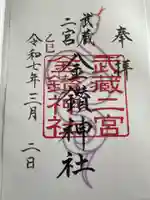 奉拝
武蔵二宮
武蔵
二宮
金鑚神社
乙巳
令和七年三月二日